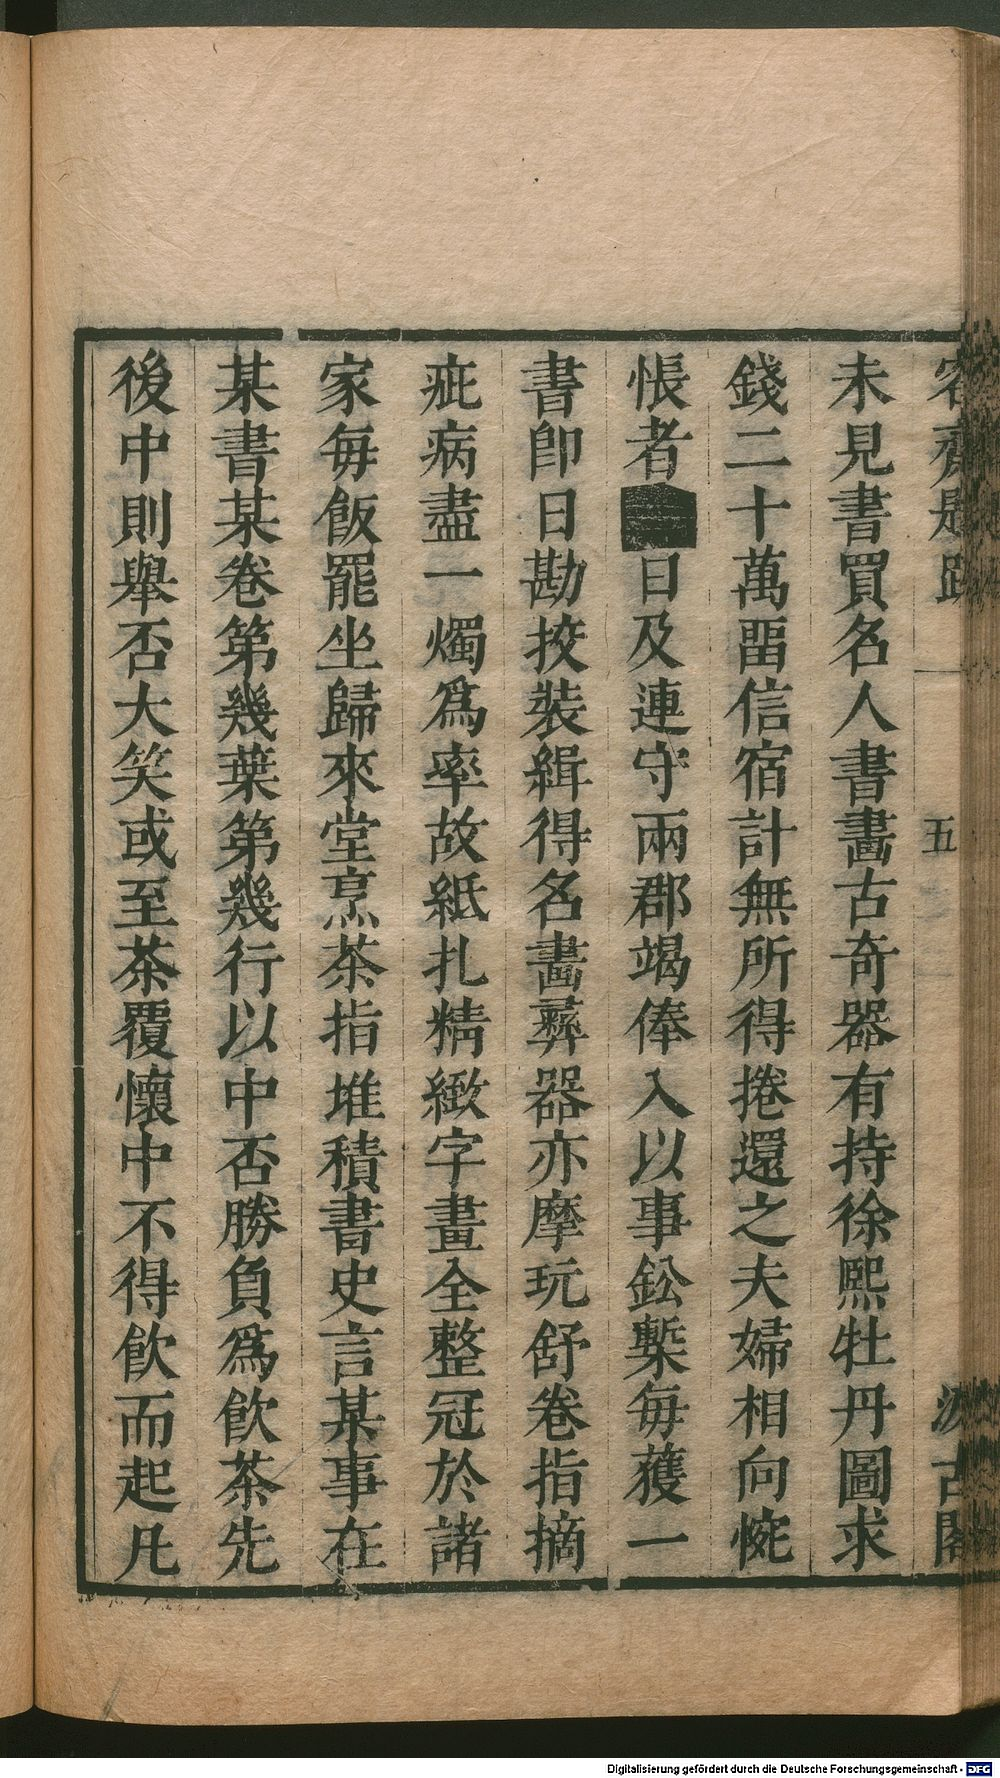 容齋題跋 五 汲古閣
未見書買名人書畵古奇器有持徐熙牡丹圖求
錢二十萬畱信宿計無所得捲還之夫婦相向惋
悵者■日及連守兩郡竭俸入以事鈆槧每獲一
書卽日勘挍裝緝得名畵彝器亦摩玩舒卷指摘
疵病盡一燭爲率故紙扎精緻字畫全整冠於諸
家每飯罷坐歸來堂烹茶指堆積書史言某事在
某書某卷第幾葉第幾行以中否勝負爲飮茶先
後中則舉否大笑或至茶覆懷中不得飮而起凡
Digitalisierung gefördert durch die Deutsche Forschungsgemeinschaft - DFG